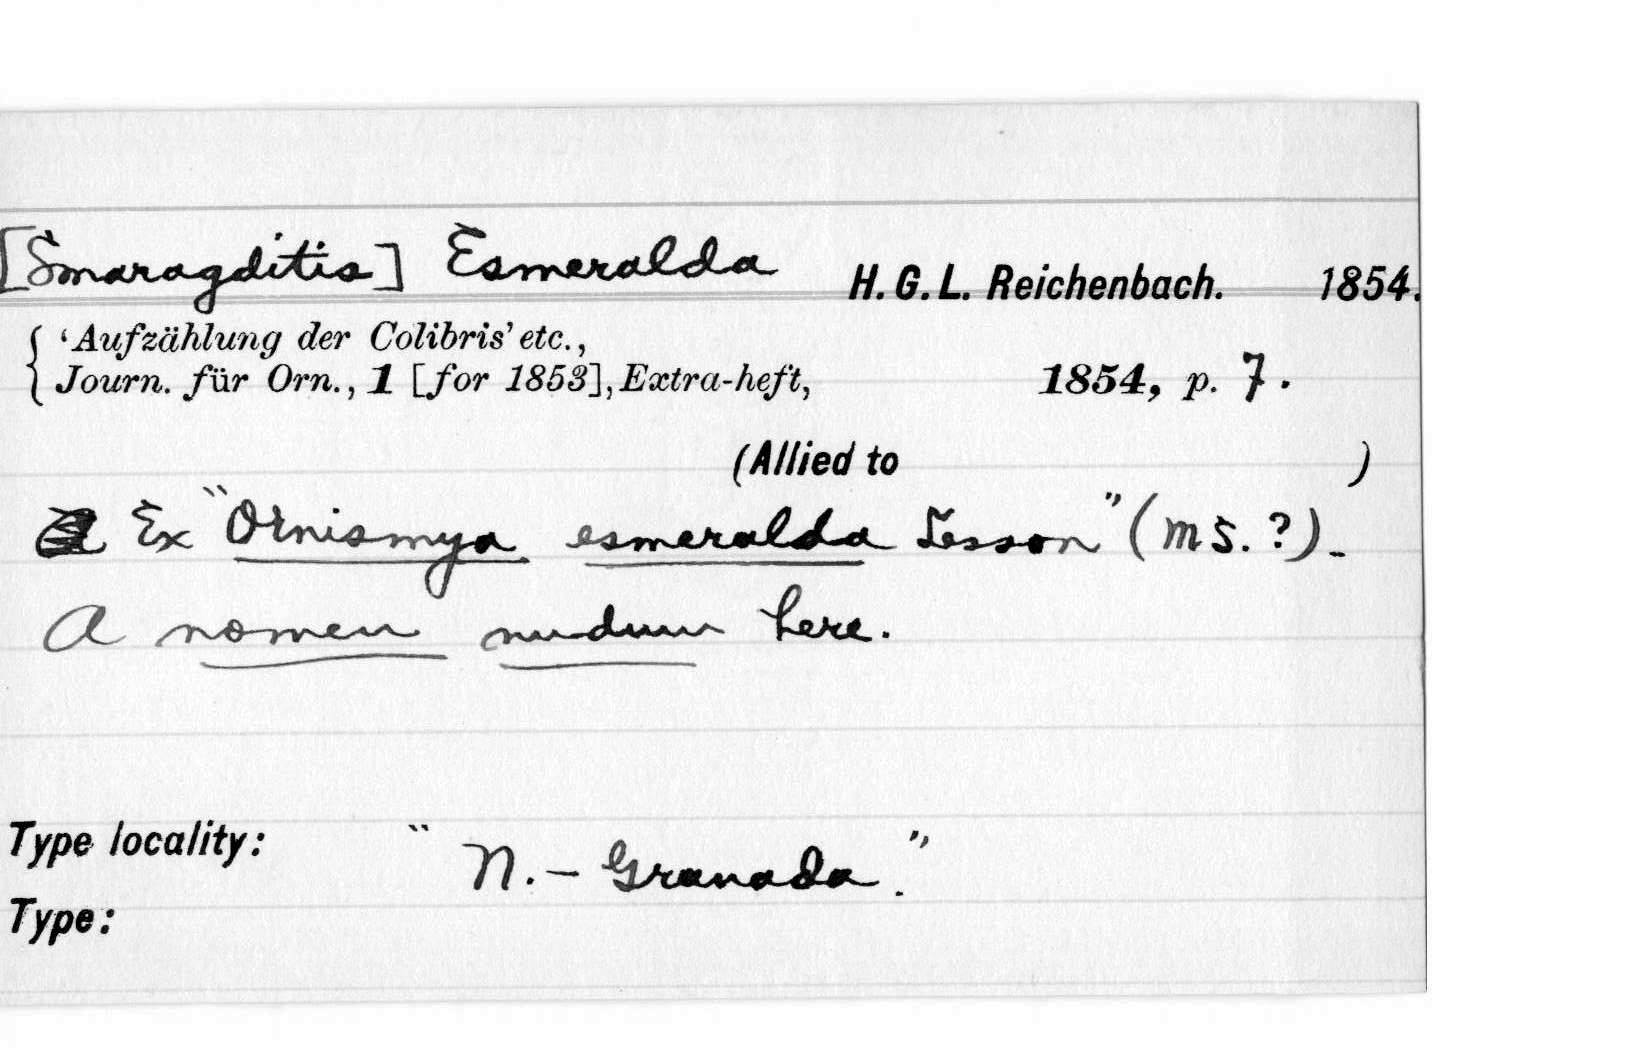 [Smaragditis] Esmeralda H. G. L. Reichenbach. 1854.
'Aufzählung der Colibris' etc.,
Journ. für Orn., 1 [for 1853], Extra-heft, 1854, p. 7.
(Allied to )
Ex "Ornismya esmeralda Lesson" (MS.?).
A nomen nudum here.
Type locality: "N. - Granada."
Type: